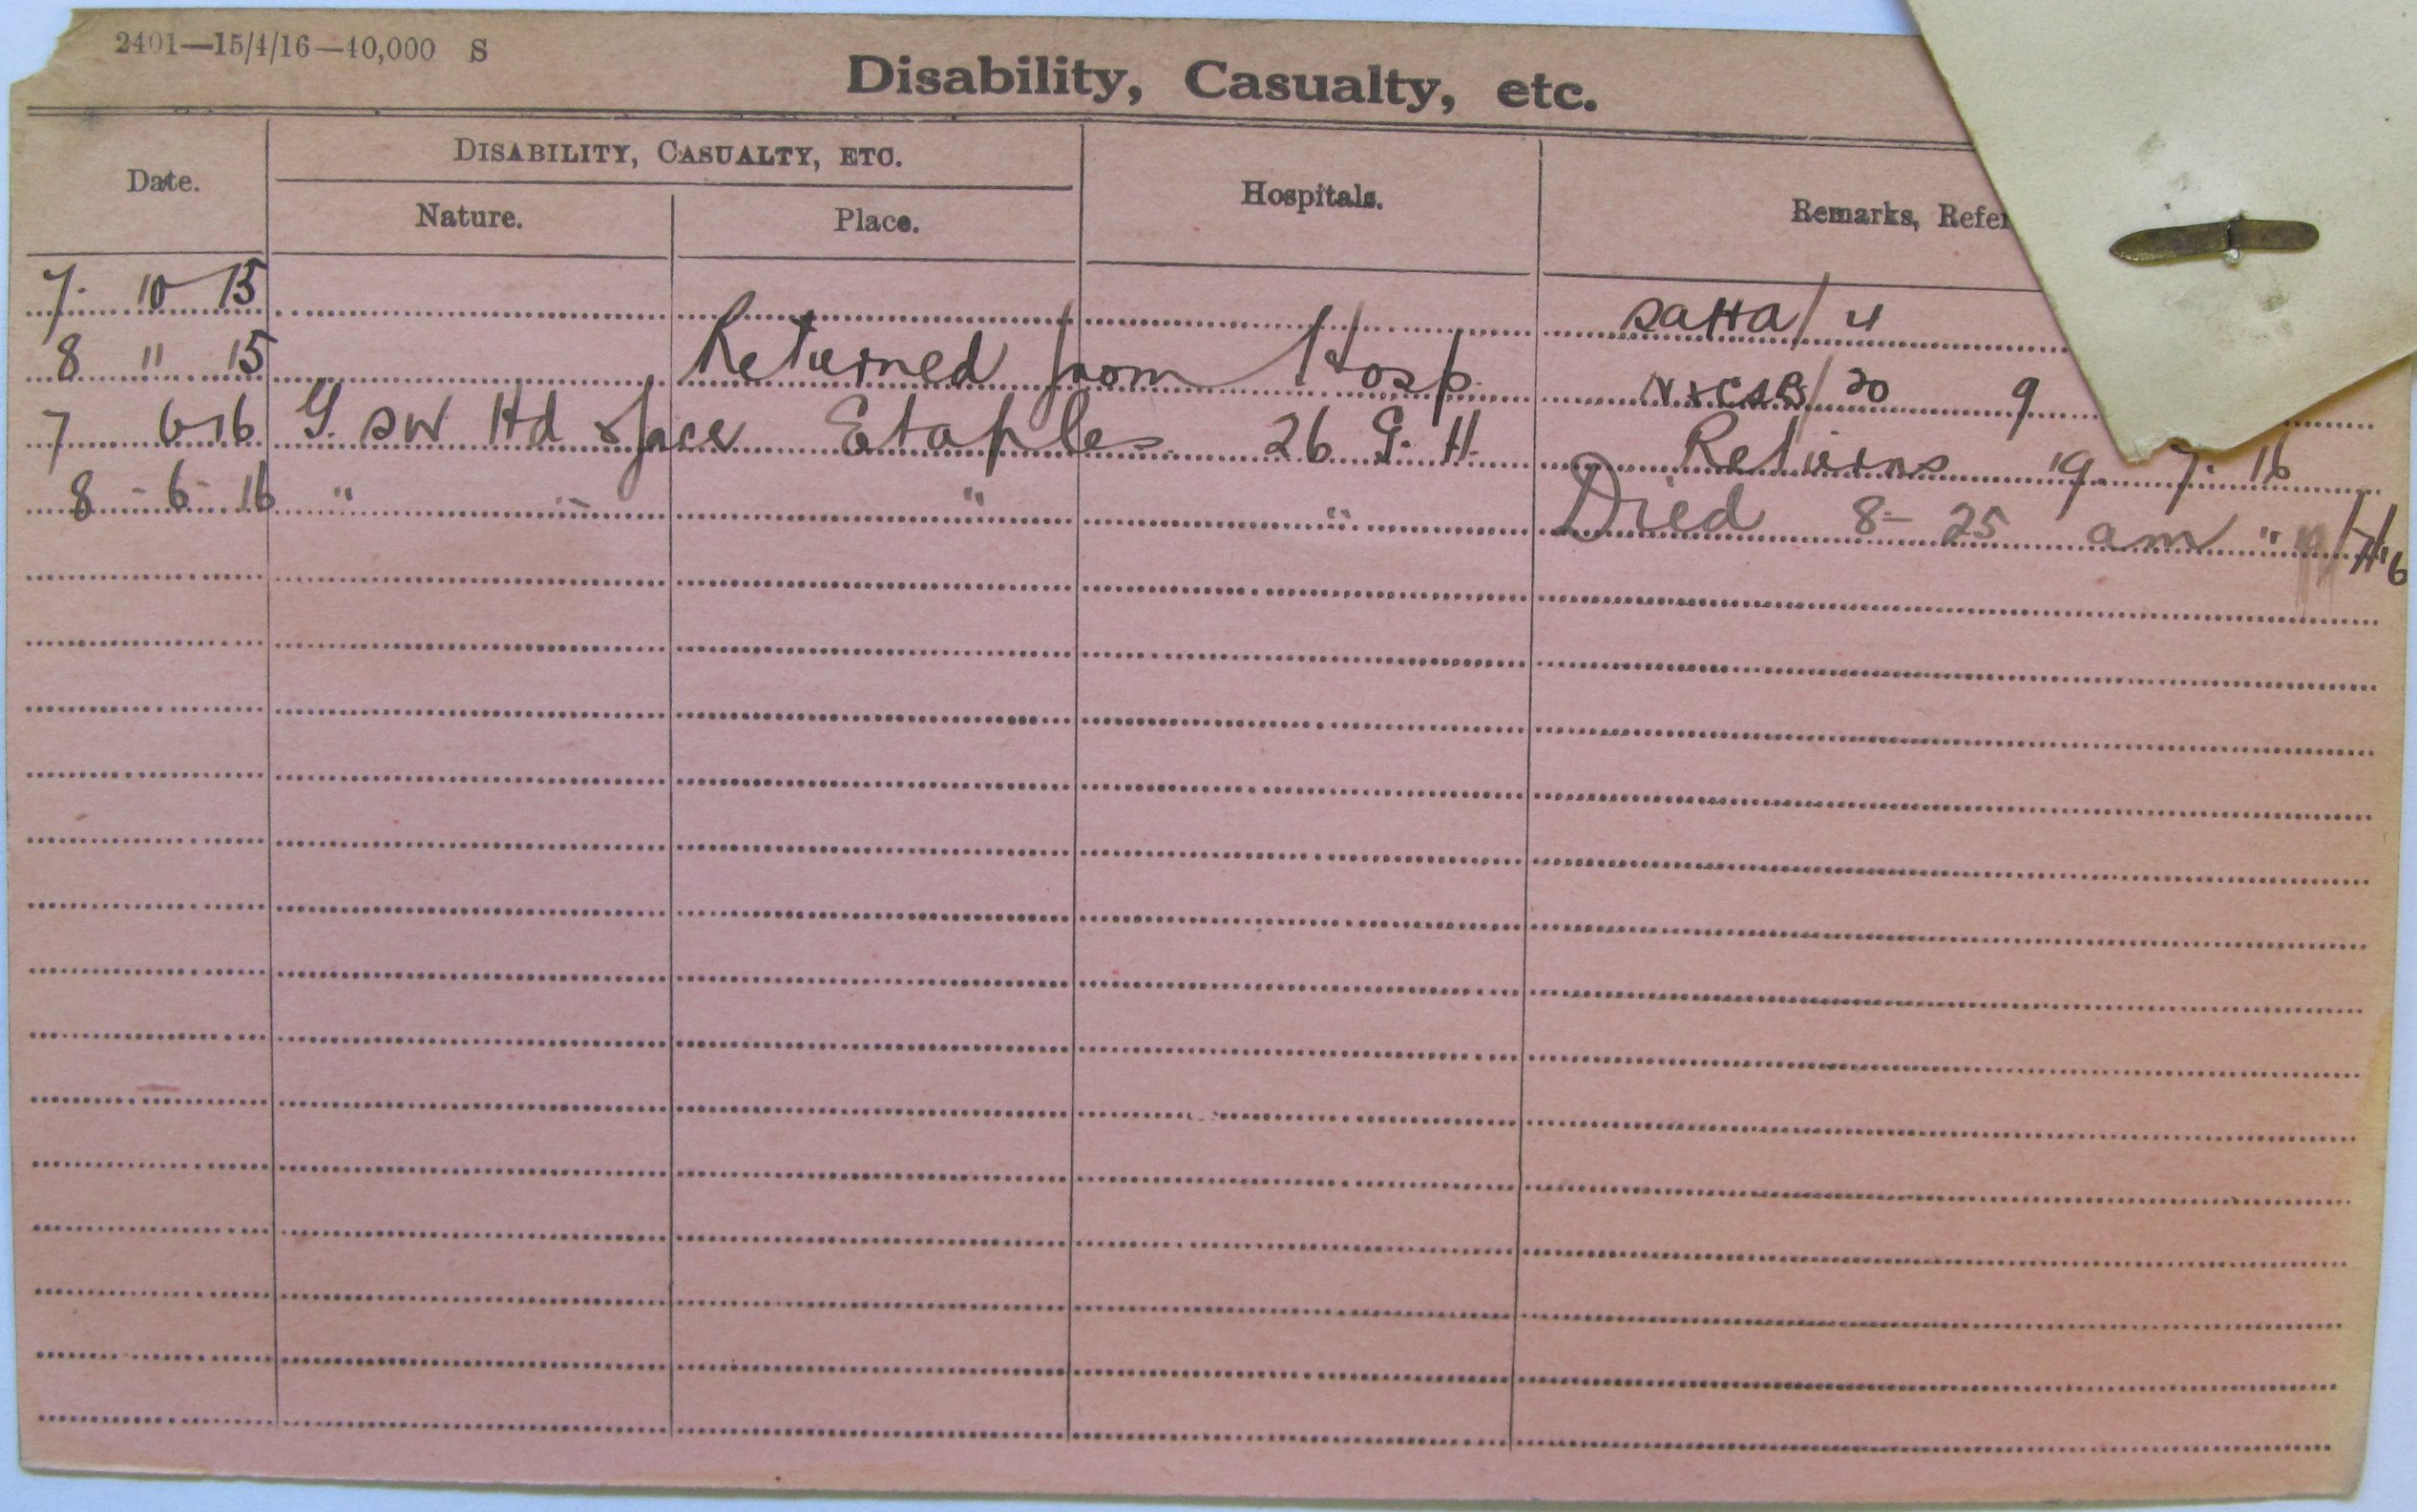 2401—15/4/16—40,000 S
Disability, Casualty, etc.
Date.
DISABILITY, CASUALTY, ETC.
Nature.
Place.
Hospitals.
Remarks, Refer
7. 10 15
8 " 15 Returned from Hosp. 20 9
7 6 16 G. SW Hd & face Etaples 26 G. H. Returns 19. 7. 16
8 - 6 - 16 " " " " Died 8-25 am "